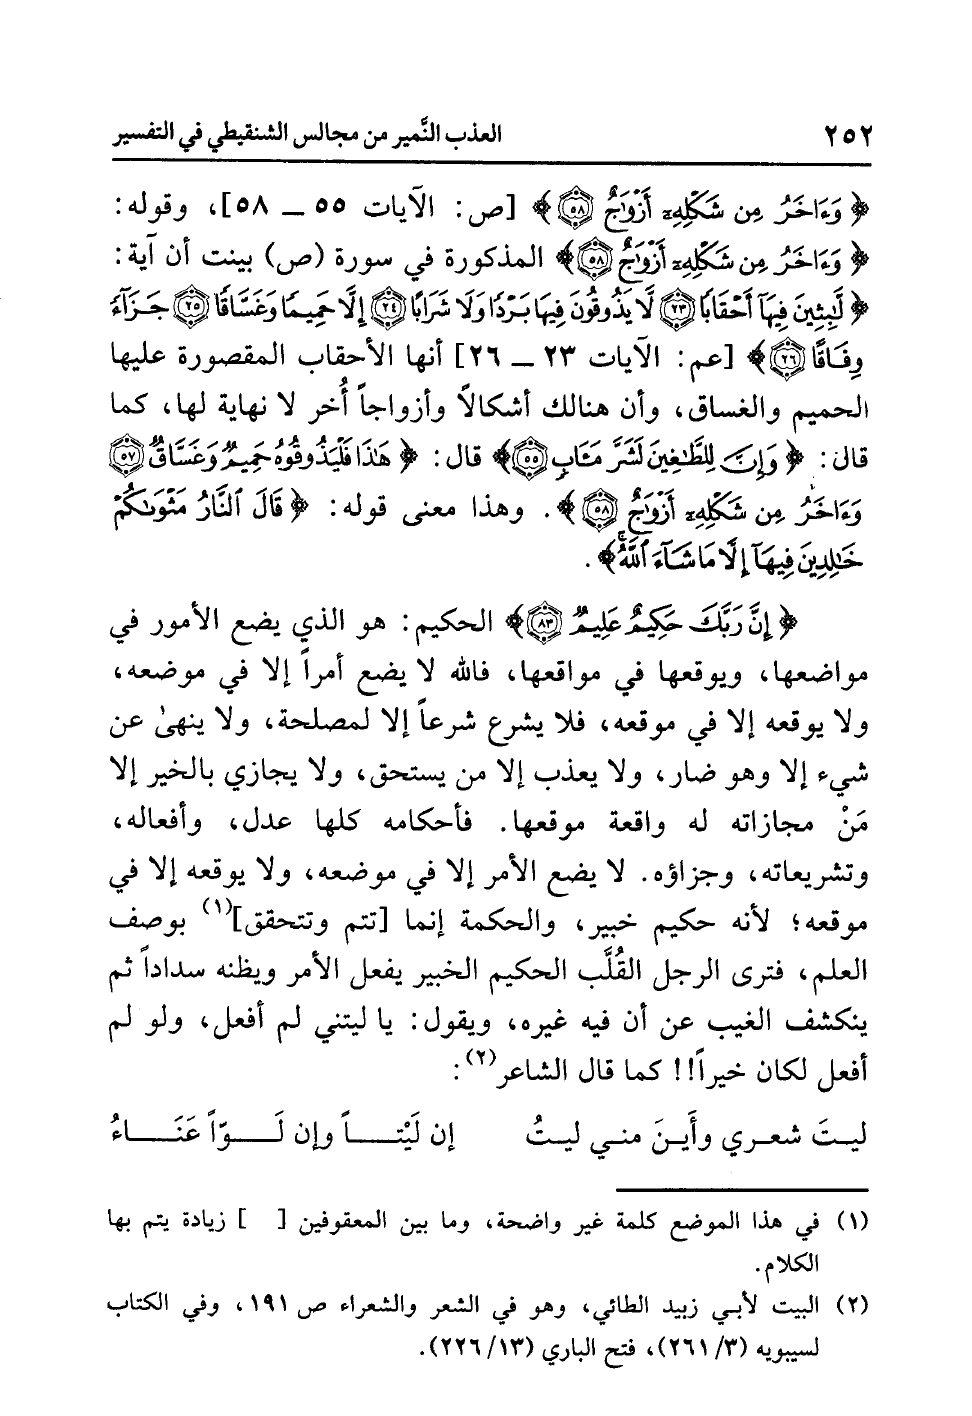 ٢٥٢ العذب النَّمير من مجالس الشنقيطي في التفسير
﴿ وَءَاخَرُ مِن شَكْلِهِۦٓ أَزْوَٰجٌ ٥٨﴾ [ص: الآيات ٥٥ ــ ٥٨]، وقوله:
﴿ وَءَاخَرُ مِن شَكْلِهِۦٓ أَزْوَٰجٌ ٥٨﴾ المذكورة في سورة (ص) بينت أن آية:
﴿ لَّٰبِثِينَ فِيهَآ أَحْقَابًا ٢٣ لَّا يَذُوقُونَ فِيهَا بَرْدًا وَلَا شَرَابًا ٢٤ إِلَّا حَمِيمًا وَغَسَّاقًا ٢٥ جَزَآءً
وِفَاقًا ٢٦﴾ [عم: الآيات ٢٣ ــ ٢٦] أنها الأحقاب المقصورة عليها
الحميم والغساق، وأن هنالك أشكالاً وأزواجاً أُخر لا نهاية لها، كما
قال: ﴿ وَإِنَّ لِلطَّٰغِينَ لَشَرَّ مَـَٔابٍ ٥٥﴾ قال: ﴿ هَٰذَا فَلْيَذُوقُوهُ حَمِيمٌ وَغَسَّاقٌ ٥٧
وَءَاخَرُ مِن شَكْلِهِۦٓ أَزْوَٰجٌ ٥٨﴾. وهذا معنى قوله: ﴿ قَالَ ٱلنَّارُ مَثْوَىٰكُمْ
خَٰلِدِينَ فِيهَآ إِلَّا مَا شَآءَ ٱللَّهُ ۗ﴾.
﴿ إِنَّ رَبَّكَ حَكِيمٌ عَلِيمٌ ٨٣﴾ الحكيم: هو الذي يضع الأمور في
مواضعها، ويوقعها في مواقعها، فالله لا يضع أمراً إلا في موضعه،
ولا يوقعه إلا في موقعه، فلا يشرع شرعاً إلا لمصلحة، ولا ينهىٰ عن
شيء إلا وهو ضار، ولا يعذب إلا من يستحق، ولا يجازي بالخير إلا
مَنْ مجازاته له واقعة موقعها. فأحكامه كلها عدل، وأفعاله،
وتشريعاته، وجزاؤه. لا يضع الأمر إلا في موضعه، ولا يوقعه إلا في
موقعه؛ لأنه حكيم خبير، والحكمة إنما [تتم وتتحقق](١) بوصف
العلم، فترى الرجل القُلَّب الحكيم الخبير يفعل الأمر ويظنه سداداً ثم
ينكشف الغيب عن أن فيه غيره، ويقول: يا ليتني لم أفعل، ولو لم
أفعل لكان خيراً!! كما قال الشاعر(٢):
ليـتَ شعـري وأَينَ منـي ليـتُ إن لَيْتـــاً وإن لَـــوّاً عَنَـــاءُ
(١) في هذا الموضع كلمة غير واضحة، وما بين المعقوفين [ ] زيادة يتم بها
الكلام.
(٢) البيت لأبي زبيد الطائي، وهو في الشعر والشعراء ص ١٩١، وفي الكتاب
لسيبويه (٣/ ٢٦١)، فتح الباري (١٣/ ٢٢٦).